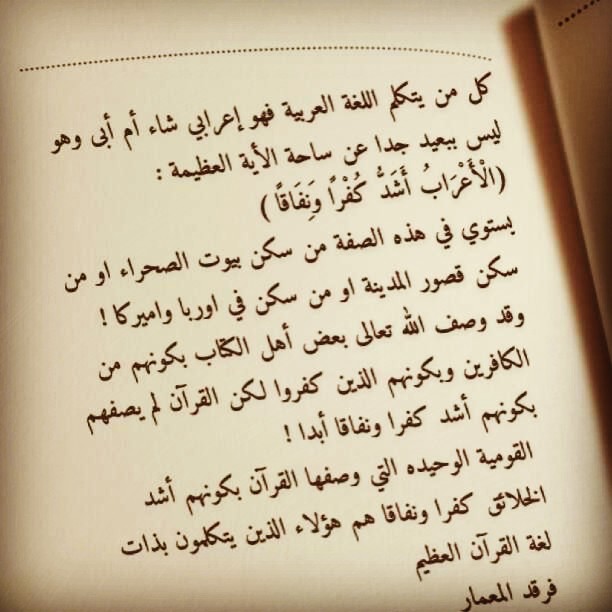 كل من يتكلم اللغة العربية فهو إعرابي شاء أم أبى وهو
ليس ببعيد جدا عن ساحة الأية العظيمة :
(الْأَعْرَابُ أَشَدُّ كُفْرًا وَنِفَاقاً )
يستوي في هذه الصفة من سكن بيوت الصحراء او من
سكن قصور المدينة او من سكن في اوربا واميركا !
وقد وصف الله تعالى بعض أهل الكتاب بكونهم من
الكافرين وبكونهم الذين كفروا لكن القرآن لم يصفهم
بكونهم أشد كفرا ونفاقا أبدا !
القومية الوحيده التي وصفها القرآن بكونهم أشد
الخلائق كفرا ونفاقا هم هؤلاء الذين يتكلمون بذات
لغة القرآن العظيم
فرقد المعمار